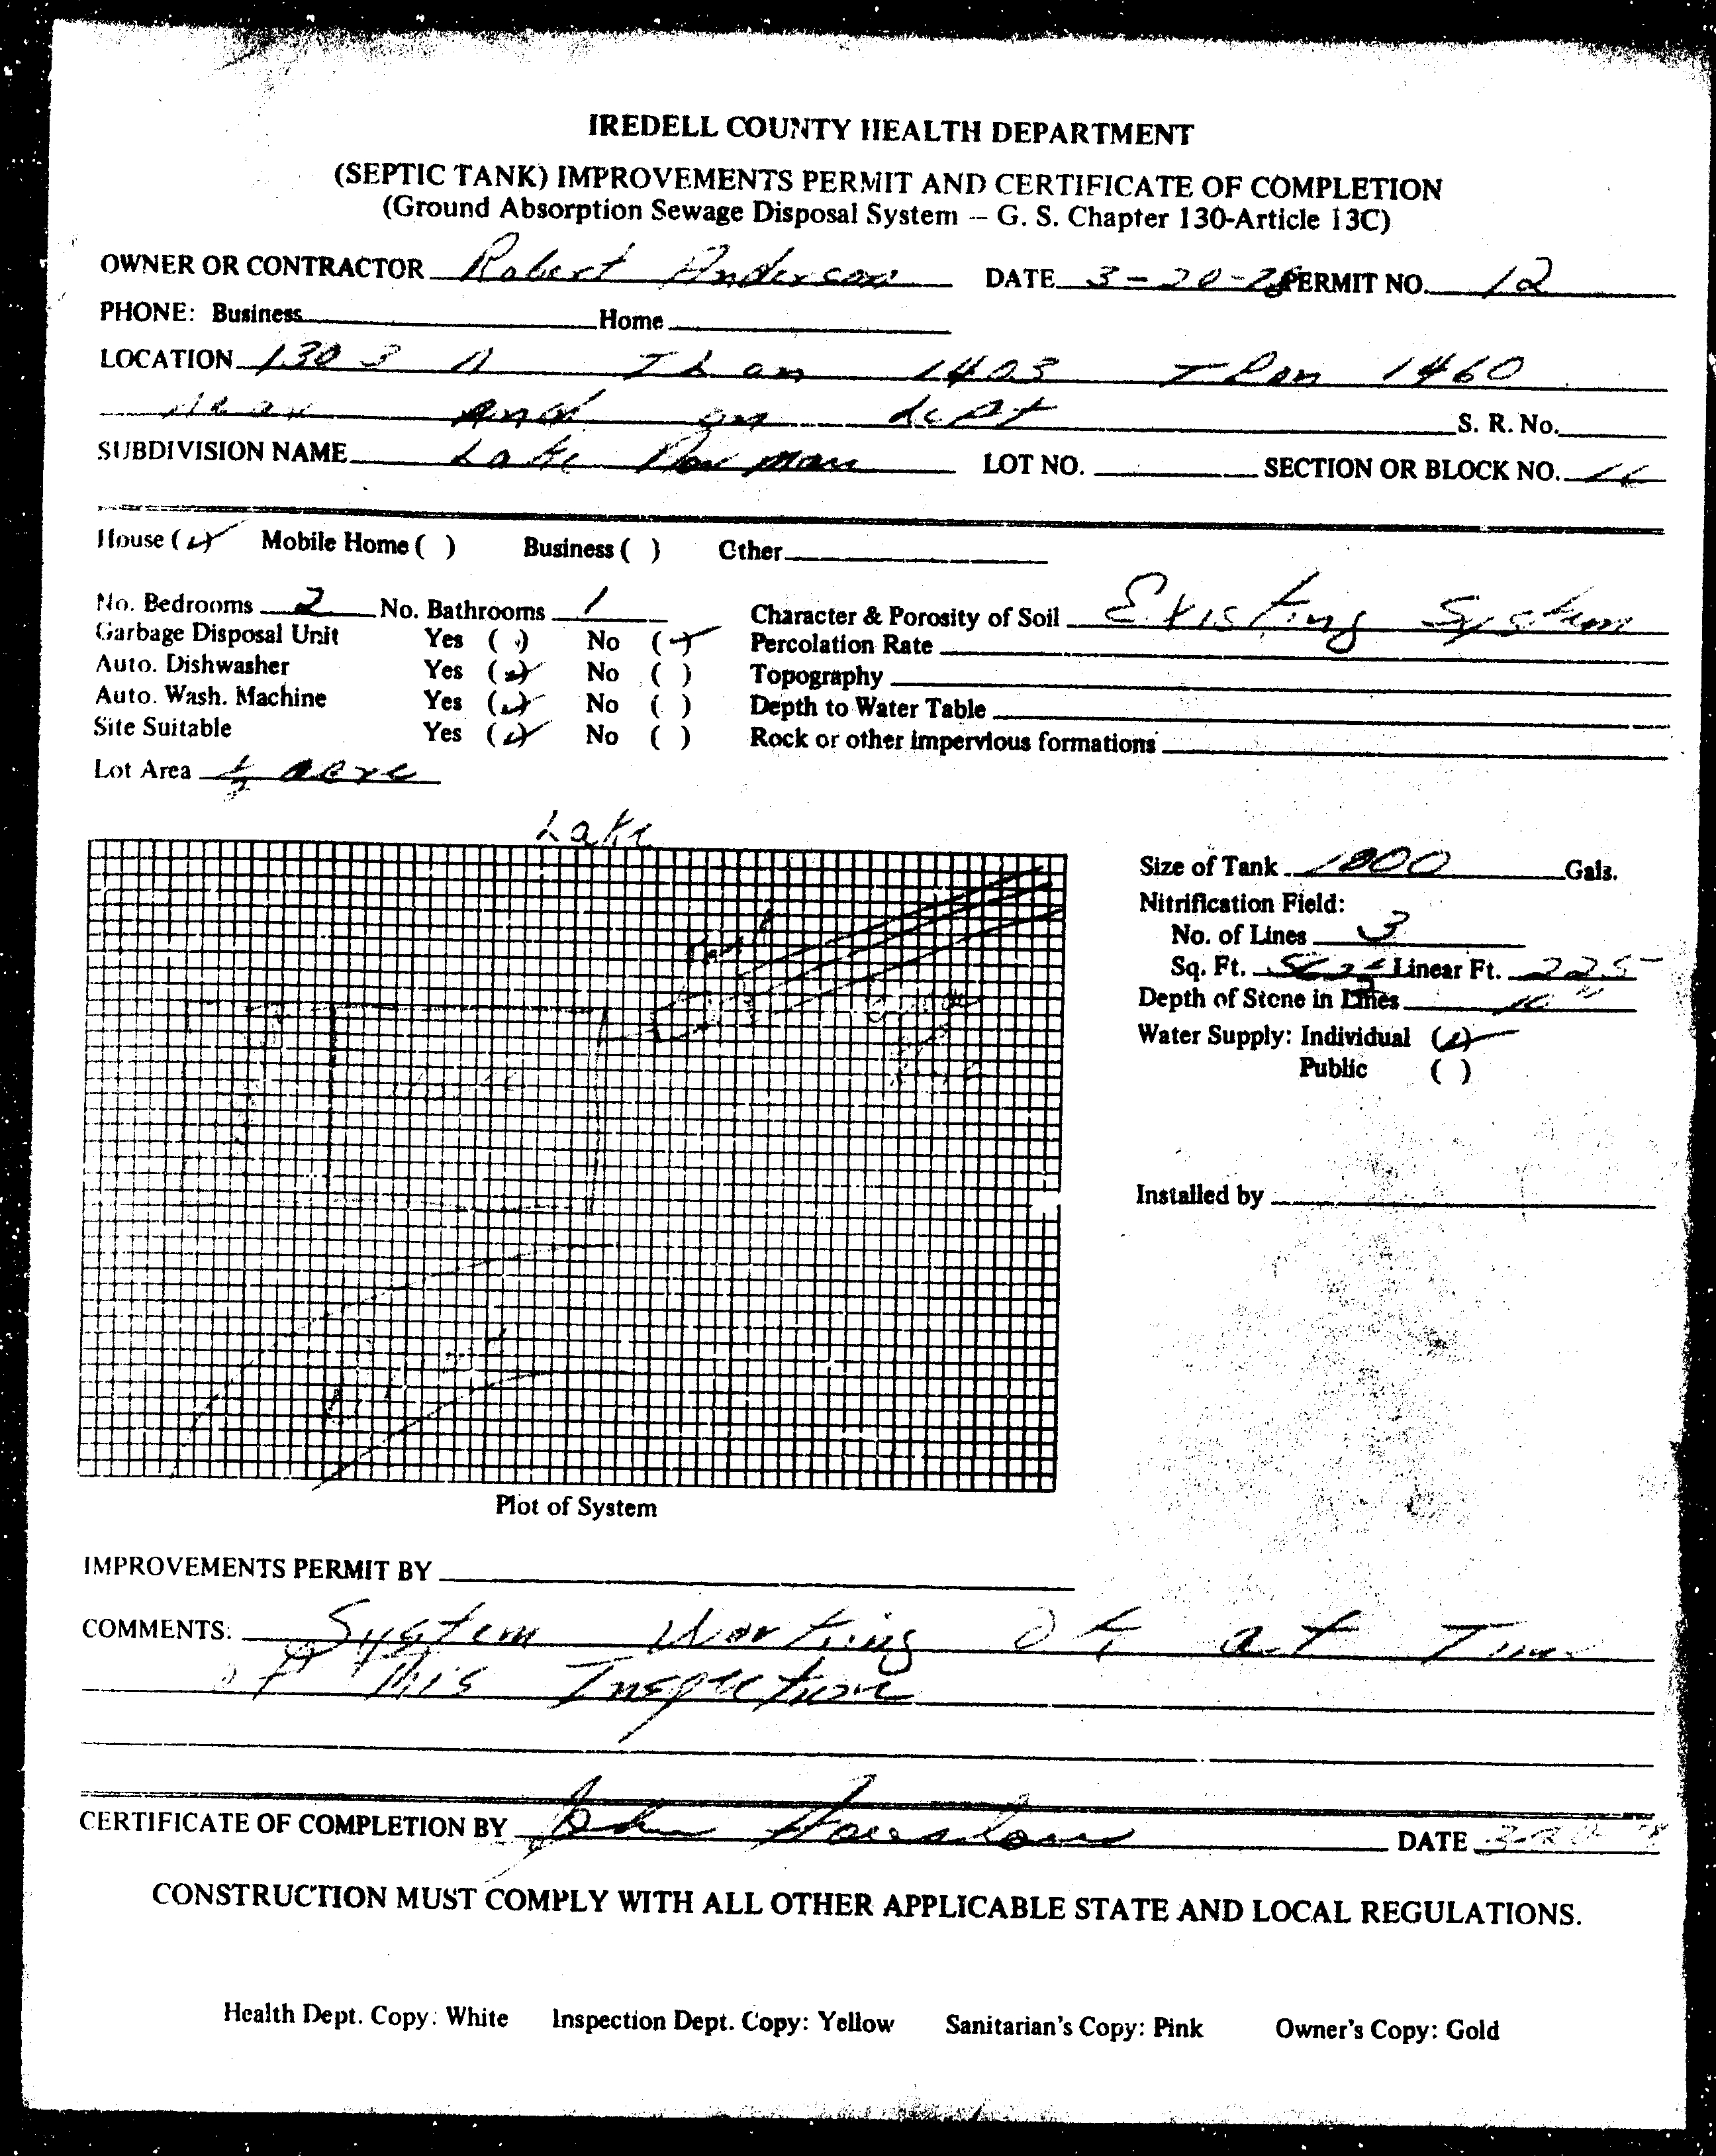 IREDELL COUNTY HEALTH DEPARTMENT
(SEPTIC TANK) IMPROVEMENTS PERMIT AND CERTIFICATE OF COMPLETION
(Ground Absorption Sewage Disposal System – G. S. Chapter 130-Article 13C)
OWNER OR CONTRACTOR Robert Anderson DATE 3-20-78 PERMIT NO. 12
PHONE: Business Home
LOCATION 1303 T L on 1403 T L on 1460
near end on left S. R. No.
SUBDIVISION NAME Lake Norman LOT NO. SECTION OR BLOCK NO.
House (✓) Mobile Home ( ) Business ( ) Other
No. Bedrooms 2 No. Bathrooms 1 Character & Porosity of Soil Existing System
Garbage Disposal Unit Yes ( ) No (✓) Percolation Rate
Auto. Dishwasher Yes (✓) No ( ) Topography
Auto. Wash. Machine Yes (✓) No ( ) Depth to Water Table
Site Suitable Yes (✓) No ( ) Rock or other impervious formations
Lot Area ½ acre
Lake
Size of Tank 1000 Gals.
Nitrification Field:
No. of Lines 3
Sq. Ft. Linear Ft. 225
Depth of Stone in Lines
Water Supply: Individual (✓)
Public ( )
Installed by
Plot of System
IMPROVEMENTS PERMIT BY
COMMENTS: System Working OK at Time
of This Inspection
CERTIFICATE OF COMPLETION BY John DATE 3-20-78
CONSTRUCTION MUST COMPLY WITH ALL OTHER APPLICABLE STATE AND LOCAL REGULATIONS.
Health Dept. Copy: White Inspection Dept. Copy: Yellow Sanitarian's Copy: Pink Owner's Copy: Gold